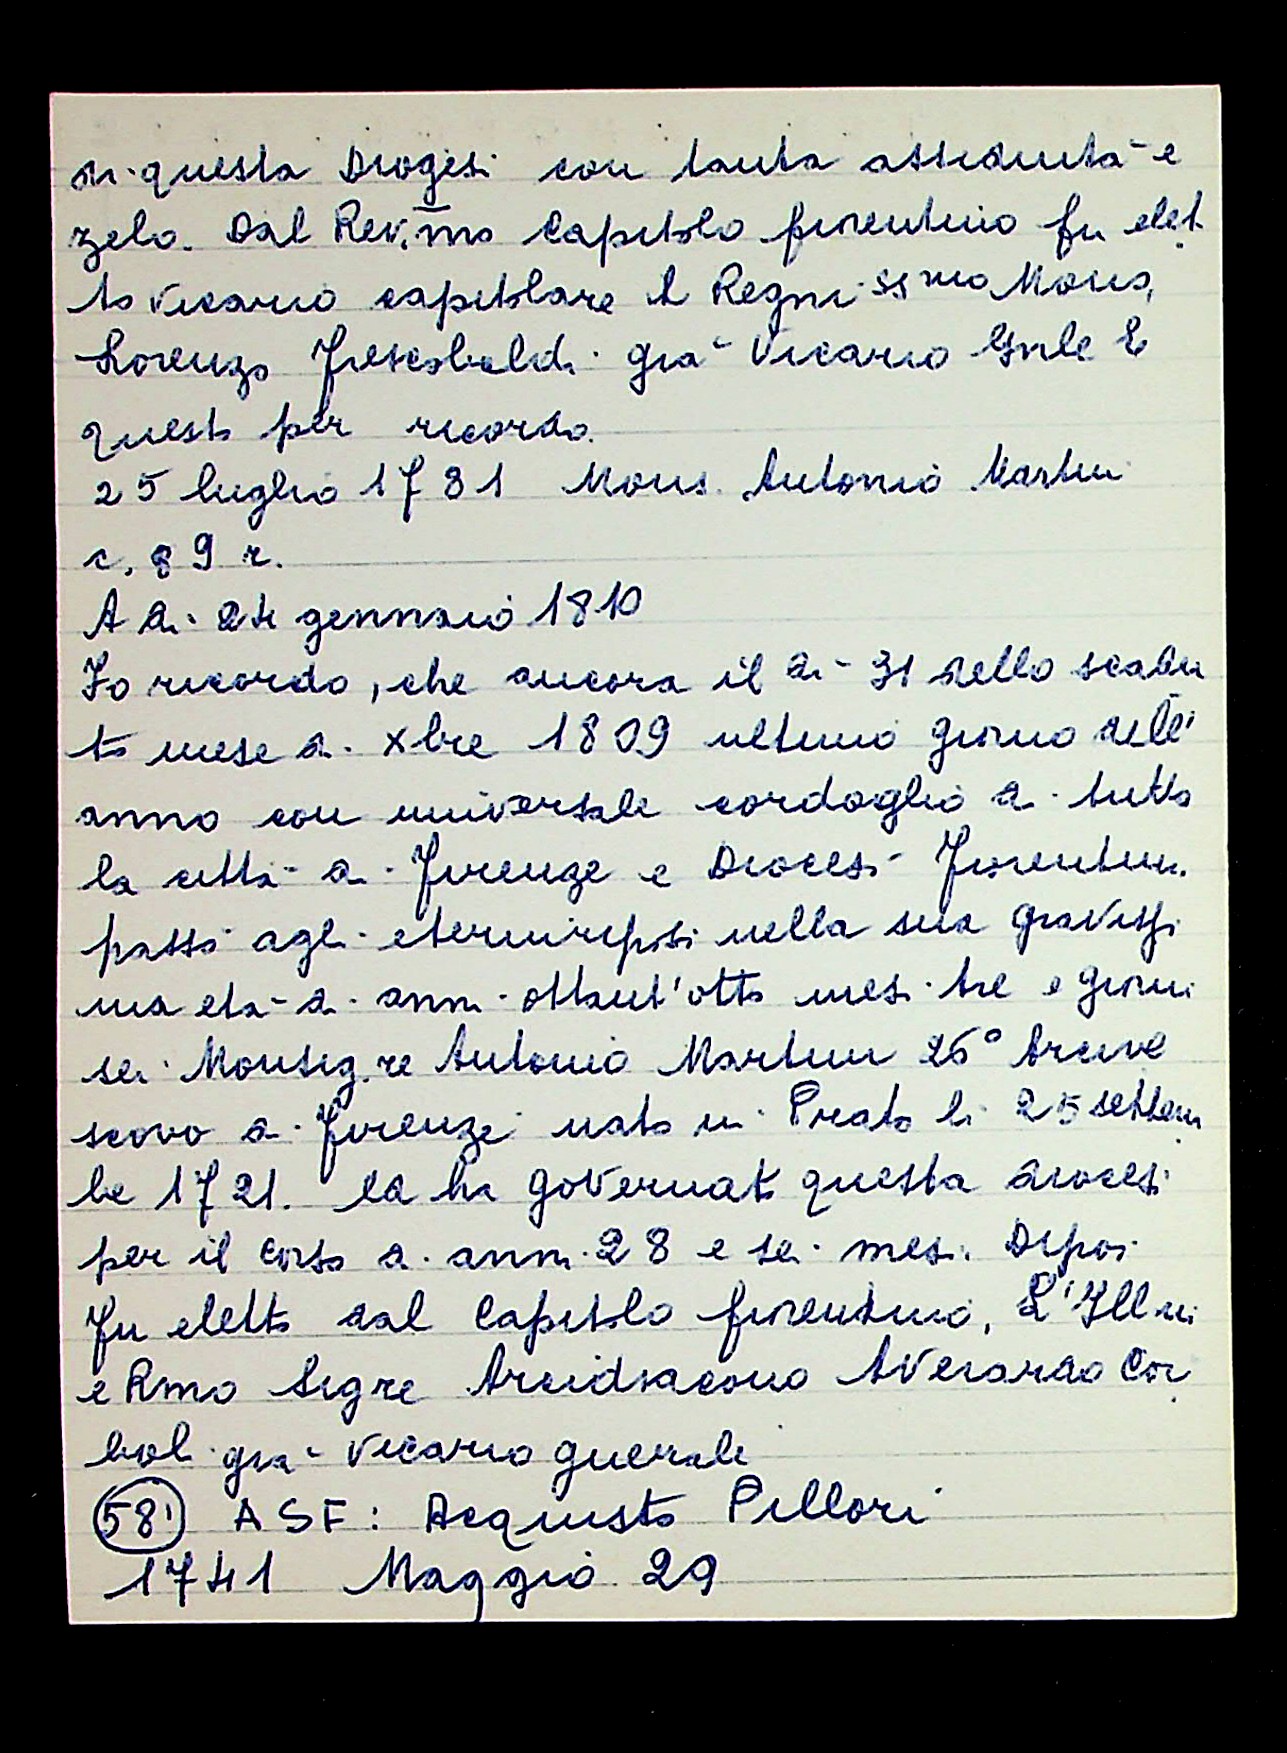 di questa Diogesi con tanta assiduità e
zelo. Dal Rev.mo Capitolo fiorentino fu elet
to vicario capitolare il Regni ssmo Mons,
Lorenzo Frescobaldi già Vicario Gnle E
questo per ricordo.
25 luglio 1781 Mons. Antonio Martini
c. 89 r.
A di 24 gennaio 1810
Fo ricordo, che ancora il di 31 dello scadu
to mese di Xbre 1809 ultimo giorno dell'
anno con universale cordoglio di tutta
la città di Firenze e Diocesi Fiorentin.
passò agli eterni riposi nella sua gravissi
ma età di anni ottant'otto mesi tre e giorni
sei Monsig.re Antonio Martini 26° Arcive
scovo di Firenze nato in Prato li 25 settem
be 1721. ed ha governato questa diocesi
per il corso di anni 28 e sei mesi. Dipoi
fu eletto dal Capitolo fiorentino, L'Ill mi
e Rmo Sigre Arcidiacono Averardo Cor
boli già Vicario guerale
(58) ASF: Acquisto Pillori
1741 Maggio 29